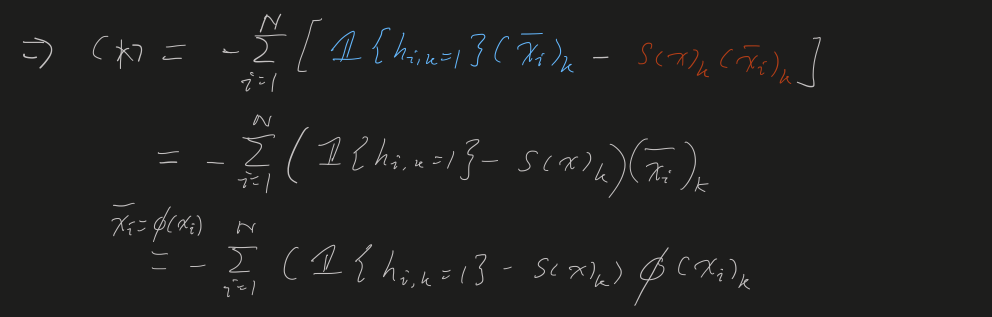 ⇒ (*) = - ∑_{i=1}^{N} [ 𝟙{h_{i,k=1}} (x̄_i)_k - S(x)_k (x̄_i)_k ]
= - ∑_{i=1}^{N} ( 𝟙{h_{i,k=1}} - S(x)_k ) (x̄_i)_k
x̄_i = ϕ(x_i)
= - ∑_{i=1}^{N} ( 𝟙{h_{i,k=1}} - S(x)_k ) ϕ(x_i)_k